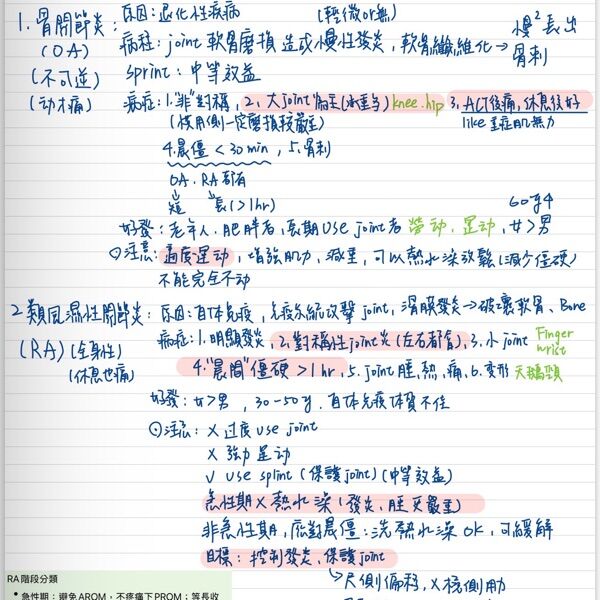 1. 骨關節炎: 原因:退化性疾病 (輕微or無)
(OA) 病程:joint 軟骨磨損 造成慢性發炎,軟骨纖維化→慢²長出骨刺
(不可逆) sprint:中等效益
(动才痛) 病症:1.“非”對稱,2、大joint為主(承重与) knee.hip 3、ACT後痛,休息後好
(使用側一定磨損較嚴重) like重症肌無力
4.晨僵 < 30 min,5.骨刺
OA、RA都有
短 長(>1hr)
好發:老年人、肥胖者、長期 use joint者 勞动、运动,女>男 60岁↑
⊙注意:適度运动,增強肌力,減重,可以熱水澡放鬆(減少僵硬)
不能完全不动
2.類風濕性關節炎:原因:自体免疫,免疫系統攻擊joint,滑膜發炎→破壞軟骨、Bone
(RA)(全身性) 病症:1.明顯發炎,2.對稱性joint炎(左右都有),3.小joint Finger wrist
(休息也痛) 4.“晨間”僵硬>1hr,5.joint腫、熱、痛,6.变形 天鵝頸
好發:女>男,30-50岁.自体免疫体質不佳
⊙注意:X 过度use joint
X 強力运动
V use splint(保護joint)(中等效益)
急性期X熱水澡(發炎、腫更嚴重)
非急性期,應對晨僵:洗熱水澡OK,可緩解
目標:控制發炎、保護joint
→尺側偏移,X橈側用
RA 階段分類
• 急性期:避免 AROM,不疼痛下PROM;等長收